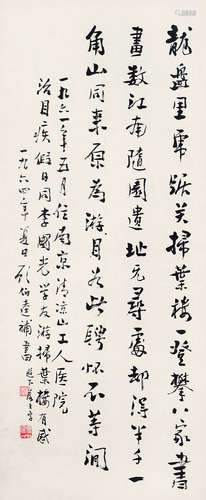 龍盤里虎踞关掃葉楼一登攀八家書
畫数江南随園遺址无尋處却得半千一
角山同来原為游目此騁怀不等闲
一九六一年五月住南京清凉山工人医院
治目疾假日同李國光学友游掃葉楼有感
一九六四年夏日顾伯逵補書